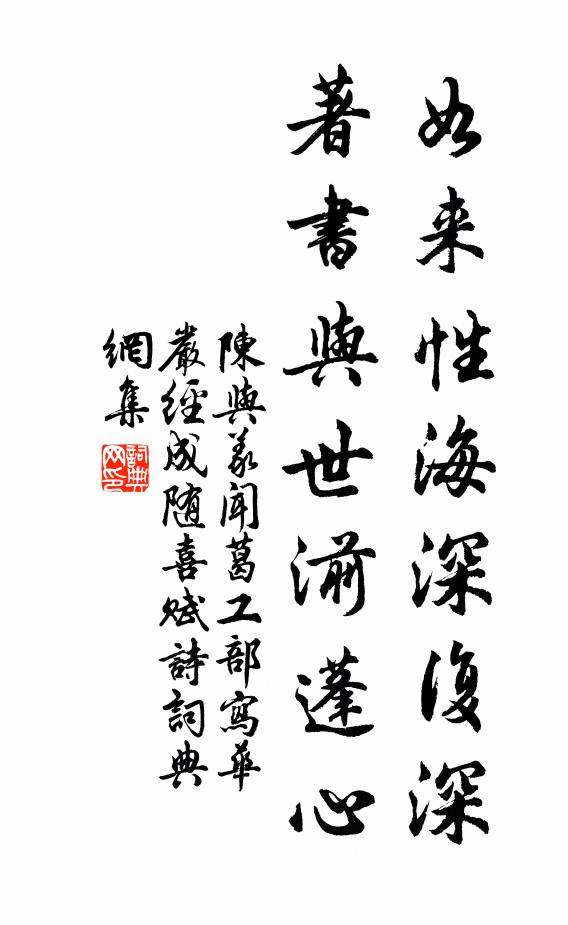 如来性海深復深
著書與世湔蓬心
陳與義聞葛工部寫華
嚴經成随喜賦詩詞典
網集
詞典網印